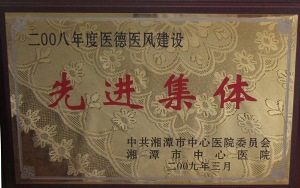 二00八年度医德医风建设
先进集体
中共湘潭市中心医院委员会
湘潭市中心医院
二00九年三月